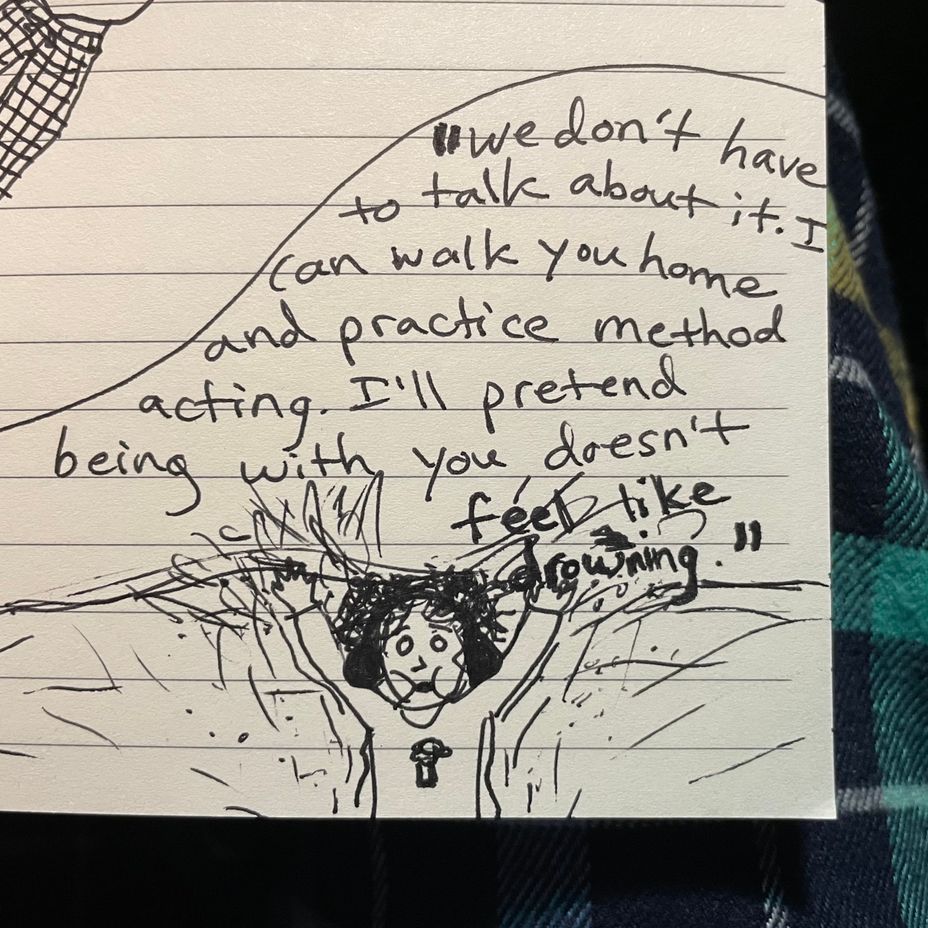 "we don't have
to talk about it. I
can walk you home
and practice method
acting. I'll pretend
being with you doesn't
feel like
drowning."